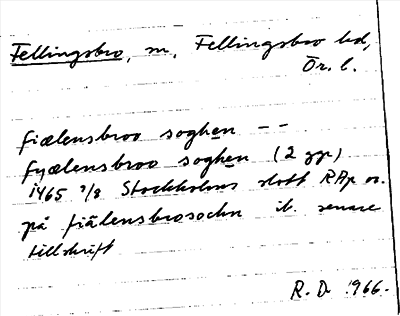 Fellingsbro, sn, Fellingsbro hd,
Ör. l.
fiælensbroo soghen --
fyælensbroo soghen (2 ggr)
1465 7/8 Stockholms slott RAp or.
på fiälensbrosockn ib. senare
tillskrift
R. D. 1966.